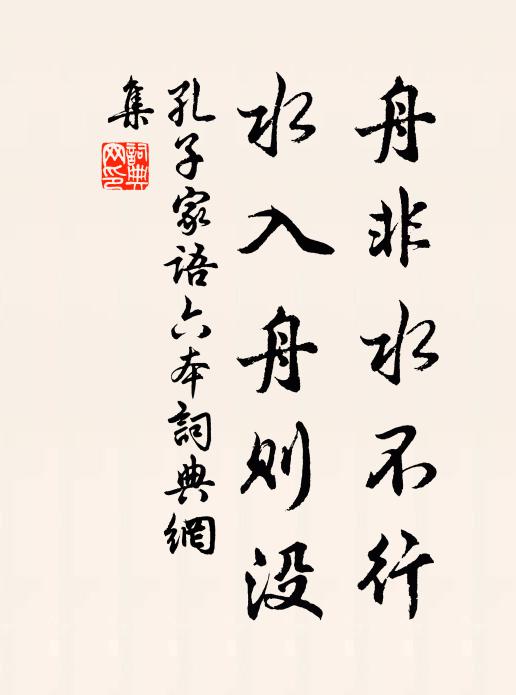 舟非水不行
水入舟则没
孔子家语六本詞典網
集
詞典
网印